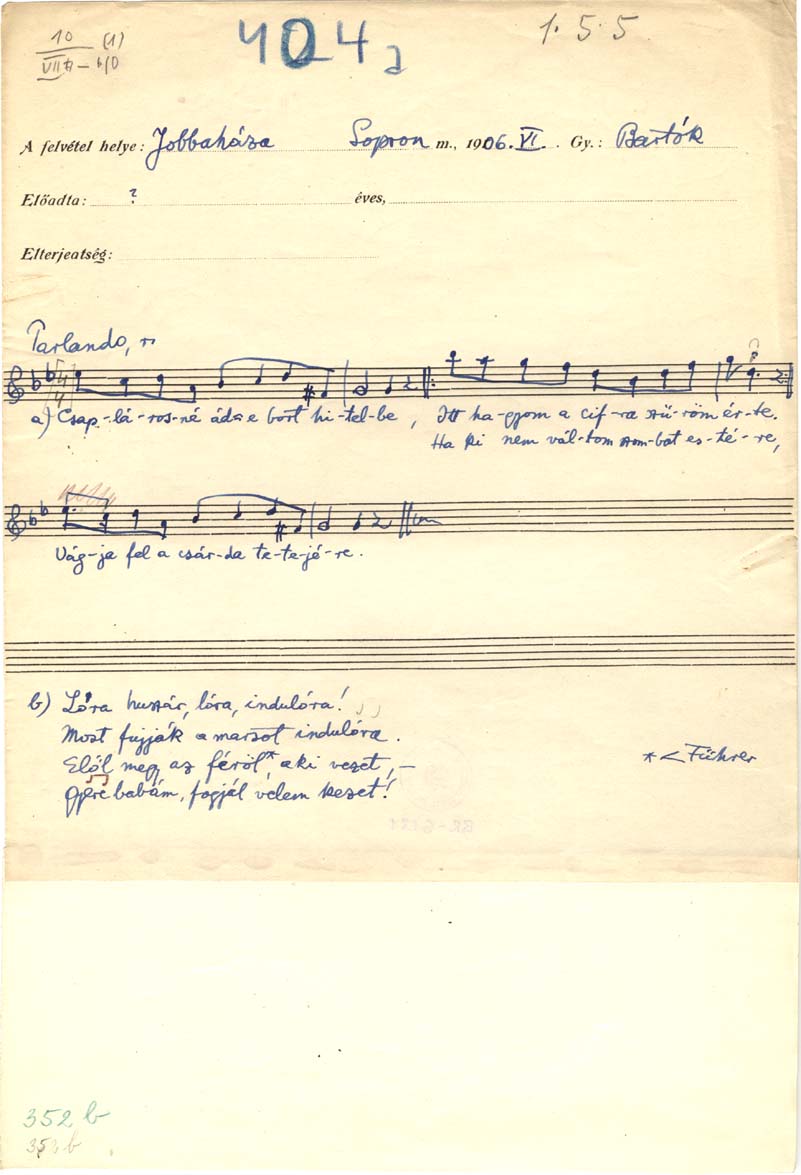 10 (1)
VII
404a
1. 5. 5
A felvétel helye: Jobbaháza Sopron m., 1906. VI. Gy.: Bartók
Előadta: ? éves,
Elterjeatség:
Parlando,
4/4
a) Csap-lá-ros-né ád-e bort hi-tel-be, Itt ha-gyom a cif-ra szü-röm ér-te.
Ha ki nem vál-tom szom-bat es-té-re,
Vág-ja fel a csár-da te-te-jé-re.
b) Lóra huszár, lóra, indulóra!
Most fujják a marsot indulóra.
Elől meg az féröl*, aki vezet, –
Gyere babám, fogjál velem kezet!
* < Führer
BR-
352 b
352 b